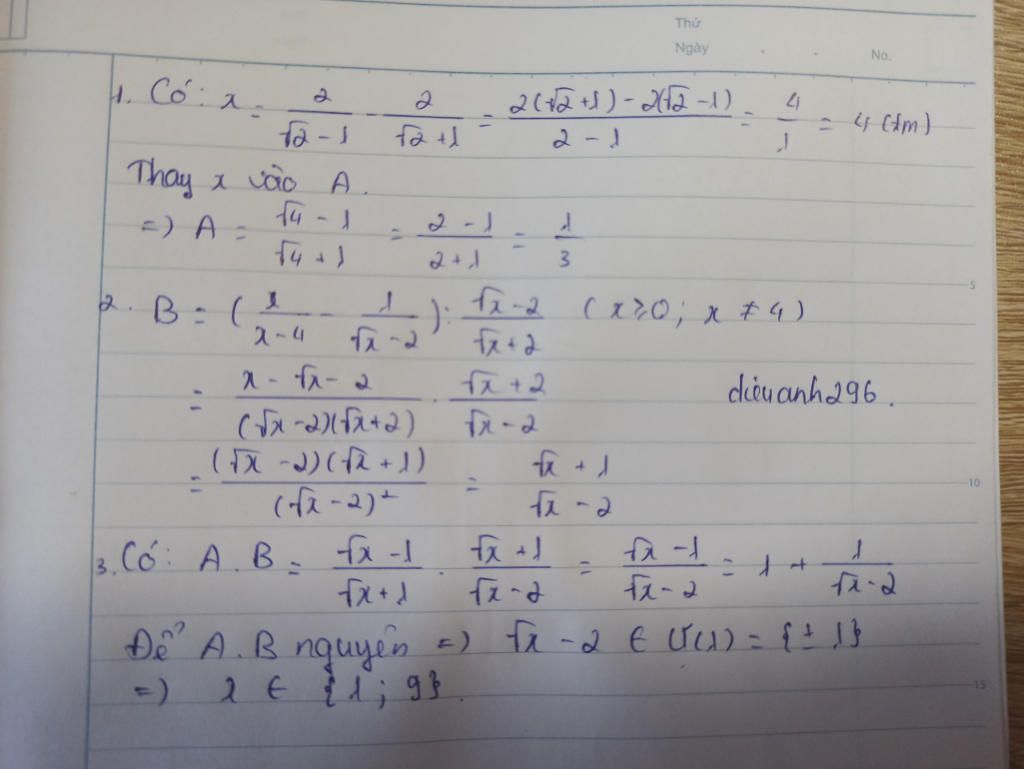 Thứ
Ngày . . No.
1. Có: x = 2/(√2 - 1) - 2/(√2 + 1) = (2(√2 + 1) - 2(√2 - 1))/(2 - 1) = 4/1 = 4 (tm)
Thay x vào A.
=) A = (√4 - 1)/(√4 + 1) = (2 - 1)/(2 + 1) = 1/3
5
2. B = (x/(x - 4) - 1/(√x - 2)) : (√x - 2)/(√x + 2) (x ≥ 0; x ≠ 4)
= (x - √x - 2)/((√x - 2)(√x + 2)) . (√x + 2)/(√x - 2)
diêuanh296.
= ((√x - 2)(√x + 1))/((√x - 2)²) = (√x + 1)/(√x - 2)
10
3. Có: A . B = (√x - 1)/(√x + 1) . (√x + 1)/(√x - 2) = (√x - 1)/(√x - 2) = 1 + 1/(√x - 2)
Để A.B nguyên =) √x - 2 ∈ Ư(1) = {± 1}
=) x ∈ {1; 9}.
15